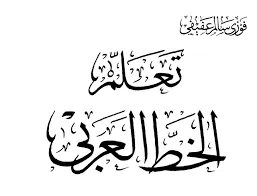 فوزي سالم عفيفي
تعلّم
الخطّ العربي